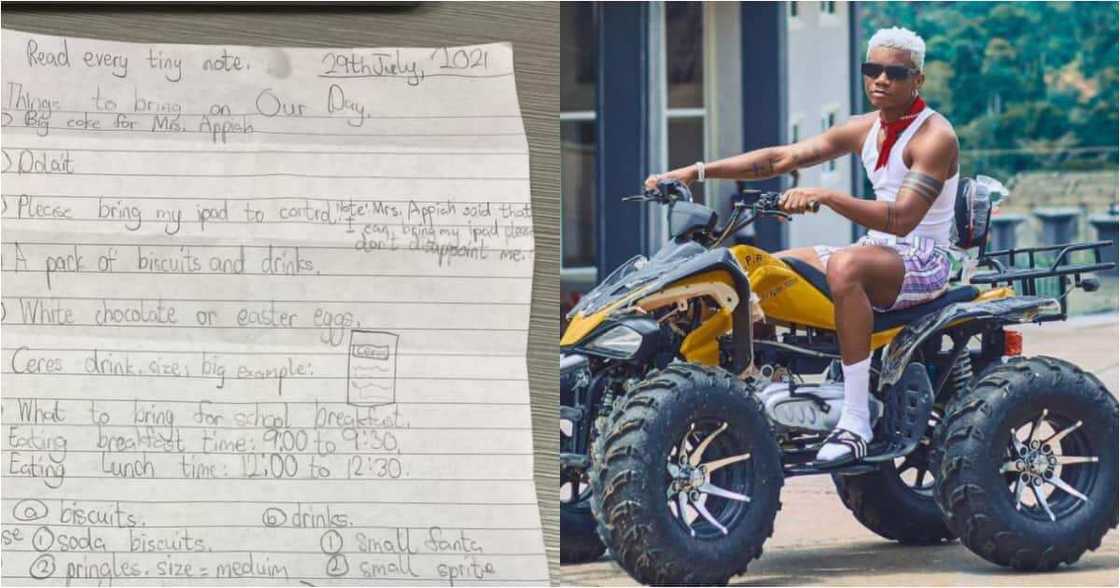 Read every tiny note. 29th July, 2021
Things to bring on Our Day.
Big cake for Mrs. Appiah
Dolait
Please bring my ipad to control. Note: Mrs. Appiah said that
I can bring my ipad please
don't disappoint me.
A pack of biscuits and drinks.
White chocolate or easter eggs.
Ceres drink. size: big example:
Ceres
What to bring for school breakfast.
Eating breakfast time: 9:00 to 9:30.
Eating Lunch time: 12:00 to 12:30.
a biscuits. b drinks.
① soda biscuits. ① small fanta
② pringles. size = meduim ② small sprite